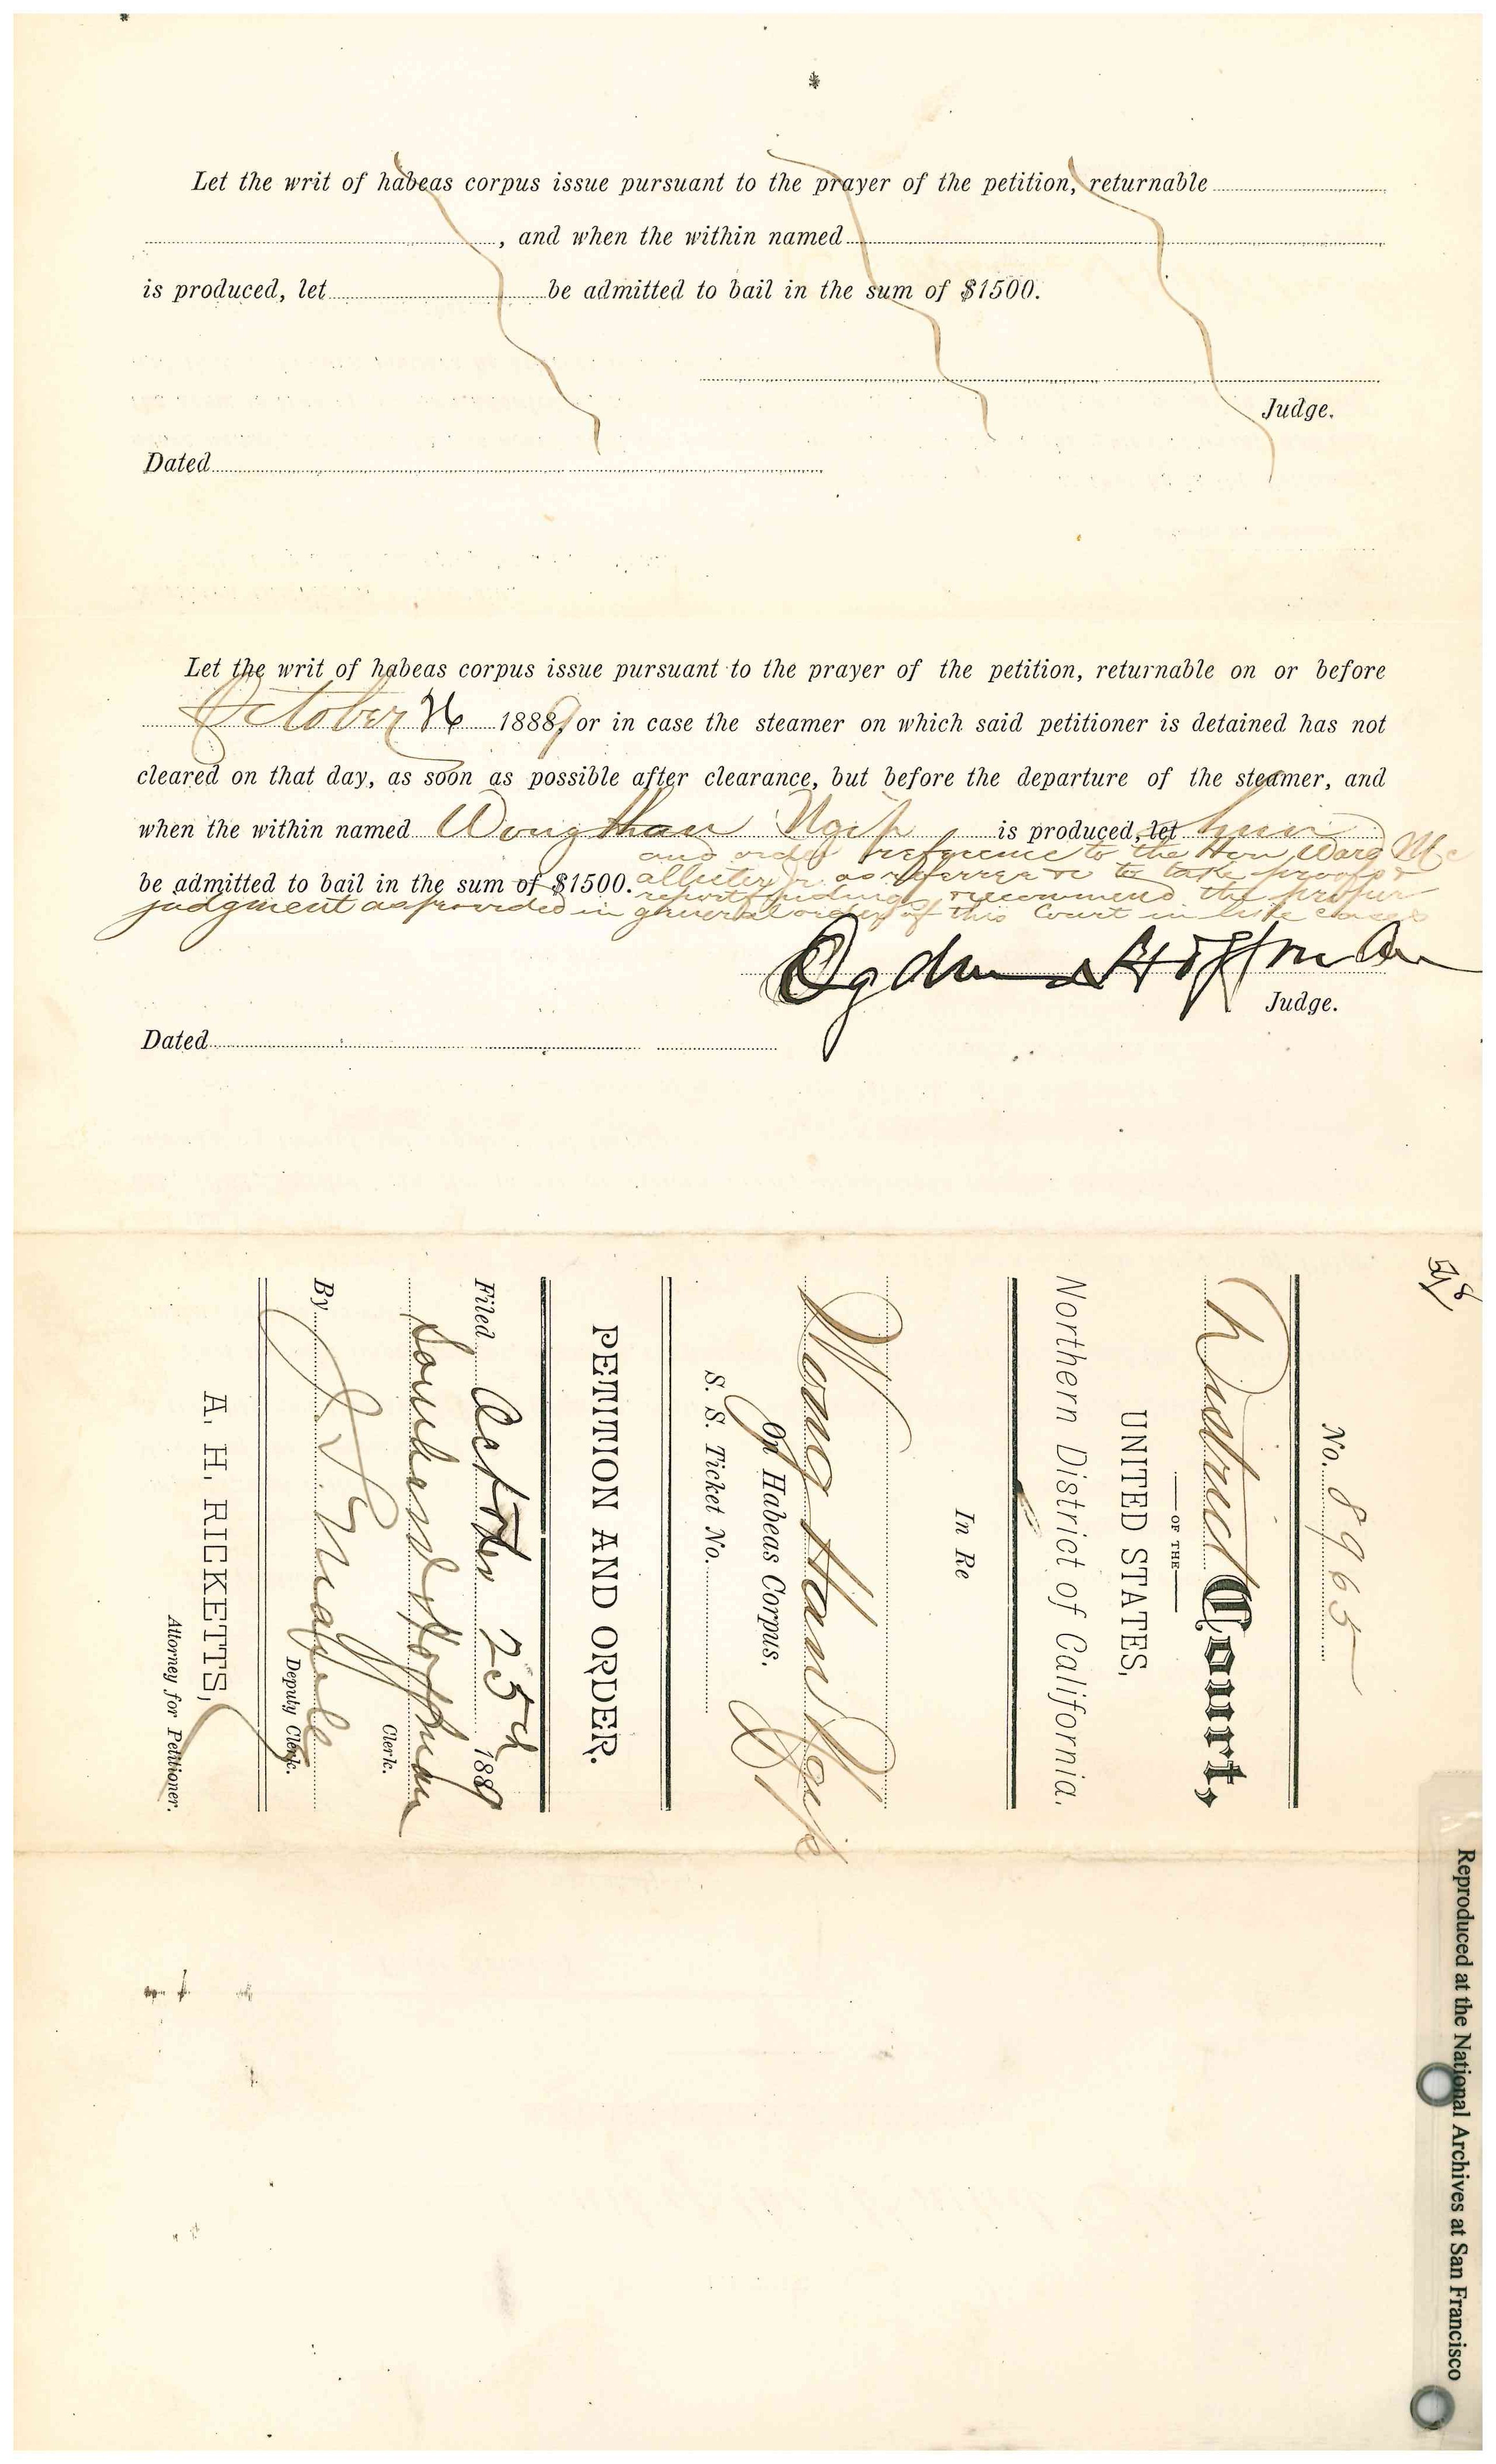 Let the writ of habeas corpus issue pursuant to the prayer of the petition, returnable
, and when the within named
is produced, let be admitted to bail in the sum of $1500.
Judge.
Dated
Let the writ of habeas corpus issue pursuant to the prayer of the petition, returnable on or before
October 26 1889, or in case the steamer on which said petitioner is detained has not
cleared on that day, as soon as possible after clearance, but before the departure of the steamer, and
when the within named Wong Han Ngip is produced, let him
and order reference to the Hon Ward Mc
be admitted to bail in the sum of $1500. allister Jr as referee to take proofs &
report findings & recommend the proper
judgment as provided in general order of this Court in like cases
Ogden Hoffman
Judge.
Dated
No. 8965
District Court,
OF THE
UNITED STATES,
Northern District of California.
In Re
Wong Han
On Habeas Corpus.
S. S. Ticket No.
PETITION AND ORDER.
Filed October 25th 1889
Southard Hoffman
Clerk.
By
Deputy Clerk.
A. H. RICKETTS,
Attorney for Petitioner.
Reproduced at the National Archives at San Francisco